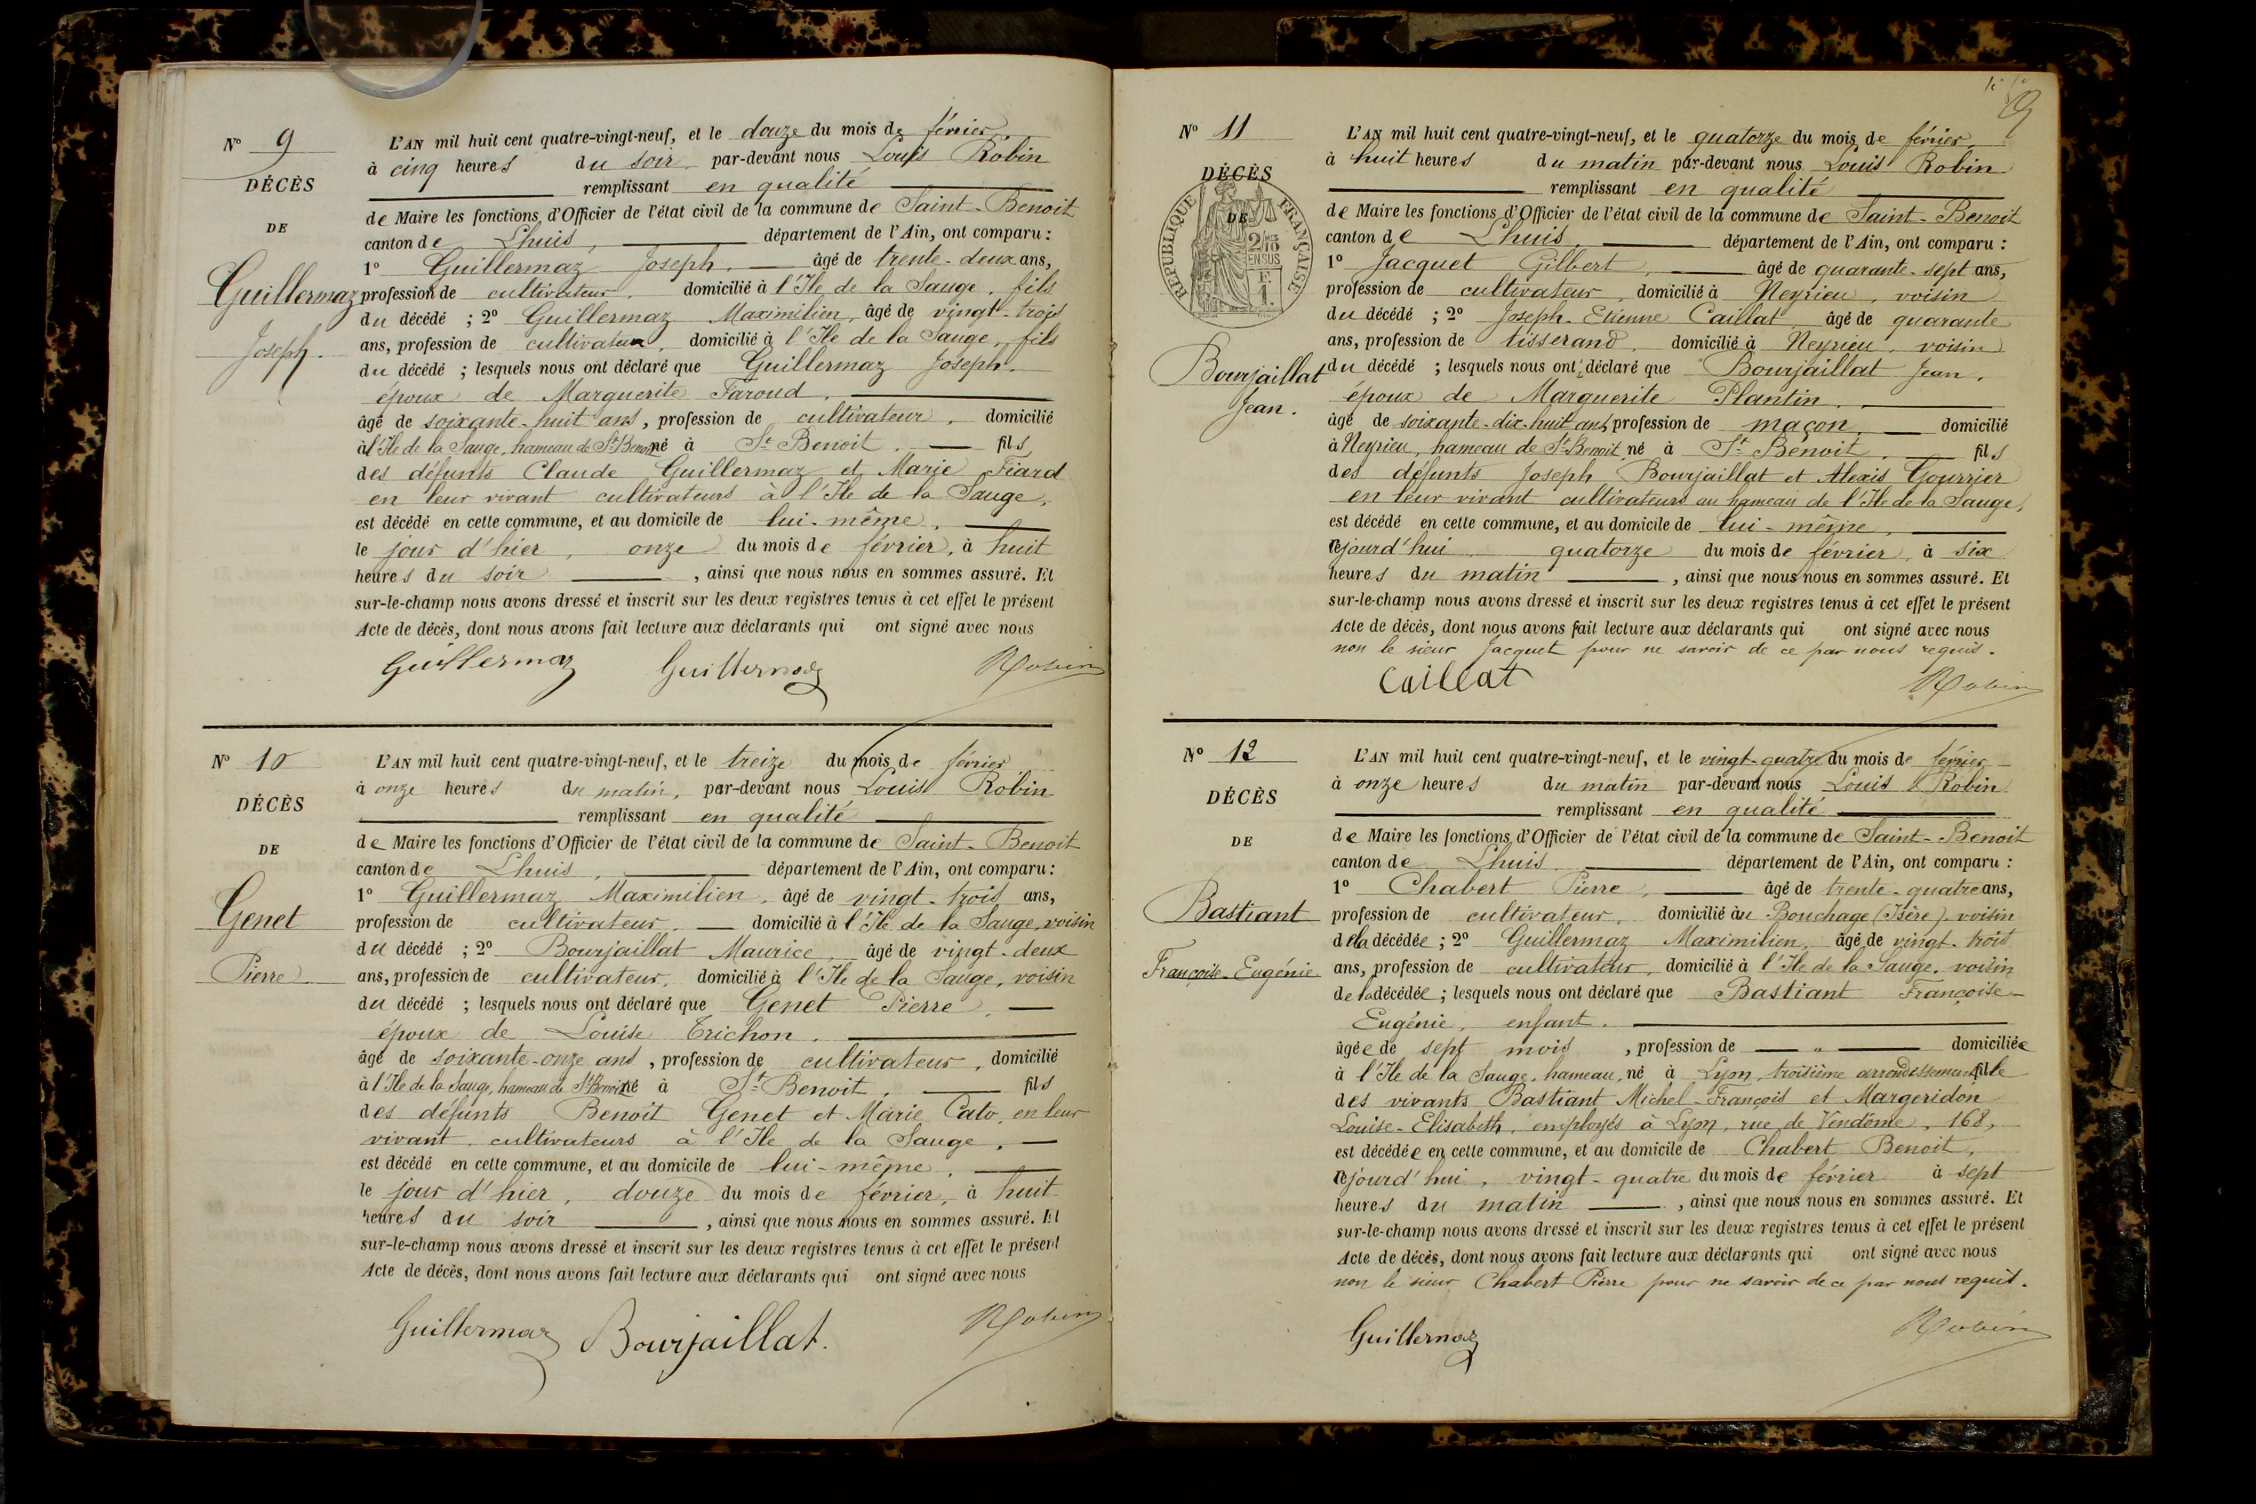 N° 9
DÉCÈS
DE
Guillermaz
Joseph.
L'AN mil huit cent quatre-vingt-neuf, et le douze du mois de février
à cinq heures du soir par-devant nous Louis Robin
remplissant en qualité
de Maire les fonctions d'Officier de l'état civil de la commune de Saint-Benoit
canton de Lhuis, département de l'Ain, ont comparu :
1° Guillermaz Joseph. âgé de trente-deux ans,
profession de cultivateur. domicilié à l'Ile de la Sauge, fils
du décédé ; 2° Guillermaz Maximilien, âgé de vingt-trois
ans, profession de cultivateur, domicilié à l'Ile de la Sauge, fils
du décédé ; lesquels nous ont déclaré que Guillermaz Joseph.
époux de Marguerite Faroud,
âgé de soixante-huit ans, profession de cultivateur, domicilié
à l'Ile de la Sauge, hameau de St Benoit né à St Benoit. fils
des défunts Claude Guillermaz et Marie Fiard
en leur vivant cultivateurs à l'Ile de la Sauge,
est décédé en cette commune, et au domicile de lui-même,
le jour d'hier, onze du mois de février, à huit
heures du soir , ainsi que nous nous en sommes assuré. Et
sur-le-champ nous avons dressé et inscrit sur les deux registres tenus à cet effet le présent
Acte de décès, dont nous avons fait lecture aux déclarants qui ont signé avec nous
Guillermaz Guillermaz Robin
N° 10
DÉCÈS
DE
Genet
Pierre
L'AN mil huit cent quatre-vingt-neuf, et le treize du mois de février
à onze heures du matin, par-devant nous Louis Robin
remplissant en qualité
de Maire les fonctions d'Officier de l'état civil de la commune de Saint-Benoit
canton de Lhuis, département de l'Ain, ont comparu :
1° Guillermaz Maximilien, âgé de vingt-trois ans,
profession de cultivateur. domicilié à l'Ile de la Sauge, voisin
du décédé ; 2° Bourjaillat Maurice, âgé de vingt-deux
ans, profession de cultivateur, domicilié à l'Ile de la Sauge, voisin
du décédé ; lesquels nous ont déclaré que Genet Pierre,
époux de Louise Trichon,
âgé de soixante-onze ans, profession de cultivateur, domicilié
à l'Ile de la Sauge, hameau de St Benoit né à St Benoit, fils
des défunts Benoit Genet et Marie Cato, en leur
vivant cultivateurs à l'Ile de la Sauge,
est décédé en cette commune, et au domicile de lui-même,
le jour d'hier, douze du mois de février, à huit
heures du soir , ainsi que nous nous en sommes assuré. Et
sur-le-champ nous avons dressé et inscrit sur les deux registres tenus à cet effet le présent
Acte de décès, dont nous avons fait lecture aux déclarants qui ont signé avec nous
Guillermaz Bourjaillat. Robin
9
N° 11
DÉCÈS
DE
RÉPUBLIQUE FRANÇAISE
2/10 EN SUS
Bourjaillat
Jean.
L'AN mil huit cent quatre-vingt-neuf, et le quatorze du mois de février,
à huit heures du matin par-devant nous Louis Robin
remplissant en qualité
de Maire les fonctions d'Officier de l'état civil de la commune de Saint-Benoit
canton de Lhuis, département de l'Ain, ont comparu :
1° Jacquet Gilbert, âgé de quarante-sept ans,
profession de cultivateur, domicilié à Neyrieu, voisin
du décédé ; 2° Joseph-Etienne Caillat âgé de quarante
ans, profession de tisserand, domicilié à Neyrieu, voisin
du décédé ; lesquels nous ont déclaré que Bourjaillat Jean,
époux de Marguerite Plantin,
âgé de soixante-dix-huit ans, profession de maçon, domicilié
à Neyrieu, hameau de St Benoit né à St Benoit, fils
des défunts Joseph Bourjaillat et Alexis Gourrier
en leur vivant cultivateurs au hameau de l'Ile de la Sauge,
est décédé en cette commune, et au domicile de lui-même,
cejourd'hui quatorze du mois de février, à six
heures du matin , ainsi que nous nous en sommes assuré. Et
sur-le-champ nous avons dressé et inscrit sur les deux registres tenus à cet effet le présent
Acte de décès, dont nous avons fait lecture aux déclarants qui ont signé avec nous
non le sieur Jacquet pour ne savoir de ce par nous requis.
Caillat Robin
N° 12
DÉCÈS
DE
Bastiant
Françoise-Eugénie
L'AN mil huit cent quatre-vingt-neuf, et le vingt-quatre du mois de février
à onze heures du matin par-devant nous Louis Robin
remplissant en qualité
de Maire les fonctions d'Officier de l'état civil de la commune de Saint-Benoit
canton de Lhuis département de l'Ain, ont comparu :
1° Chabert Pierre, âgé de trente-quatre ans,
profession de cultivateur, domicilié au Bouchage (Isère) voisin
de la décédée ; 2° Guillermaz Maximilien, âgé de vingt-trois
ans, profession de cultivateur, domicilié à l'Ile de la Sauge, voisin
de la décédée ; lesquels nous ont déclaré que Bastiant Françoise-
Eugénie, enfant.
âgée de sept mois , profession de " domiciliée
à l'Ile de la Sauge, hameau, né à Lyon, troisième arrondissement fille
des vivants Bastiant Michel-François et Margeridon
Louise-Elisabeth, employés à Lyon, rue de Vendôme, 168,
est décédée en cette commune, et au domicile de Chabert Benoit,
cejourd'hui, vingt-quatre du mois de février à sept
heures du matin , ainsi que nous nous en sommes assuré. Et
sur-le-champ nous avons dressé et inscrit sur les deux registres tenus à cet effet le présent
Acte de décès, dont nous avons fait lecture aux déclarants qui ont signé avec nous
non le sieur Chabert Pierre pour ne savoir de ce par nous requit.
Guillermaz Robin